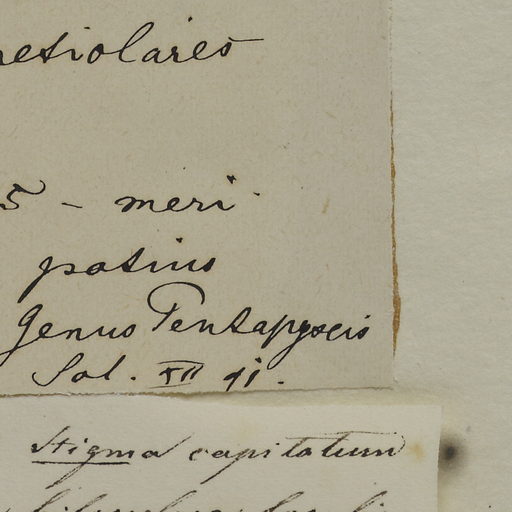 petiolares
5 - meri.
potius
Genus Pentapyxis
Sol. XII 91.
Stigma capitatum